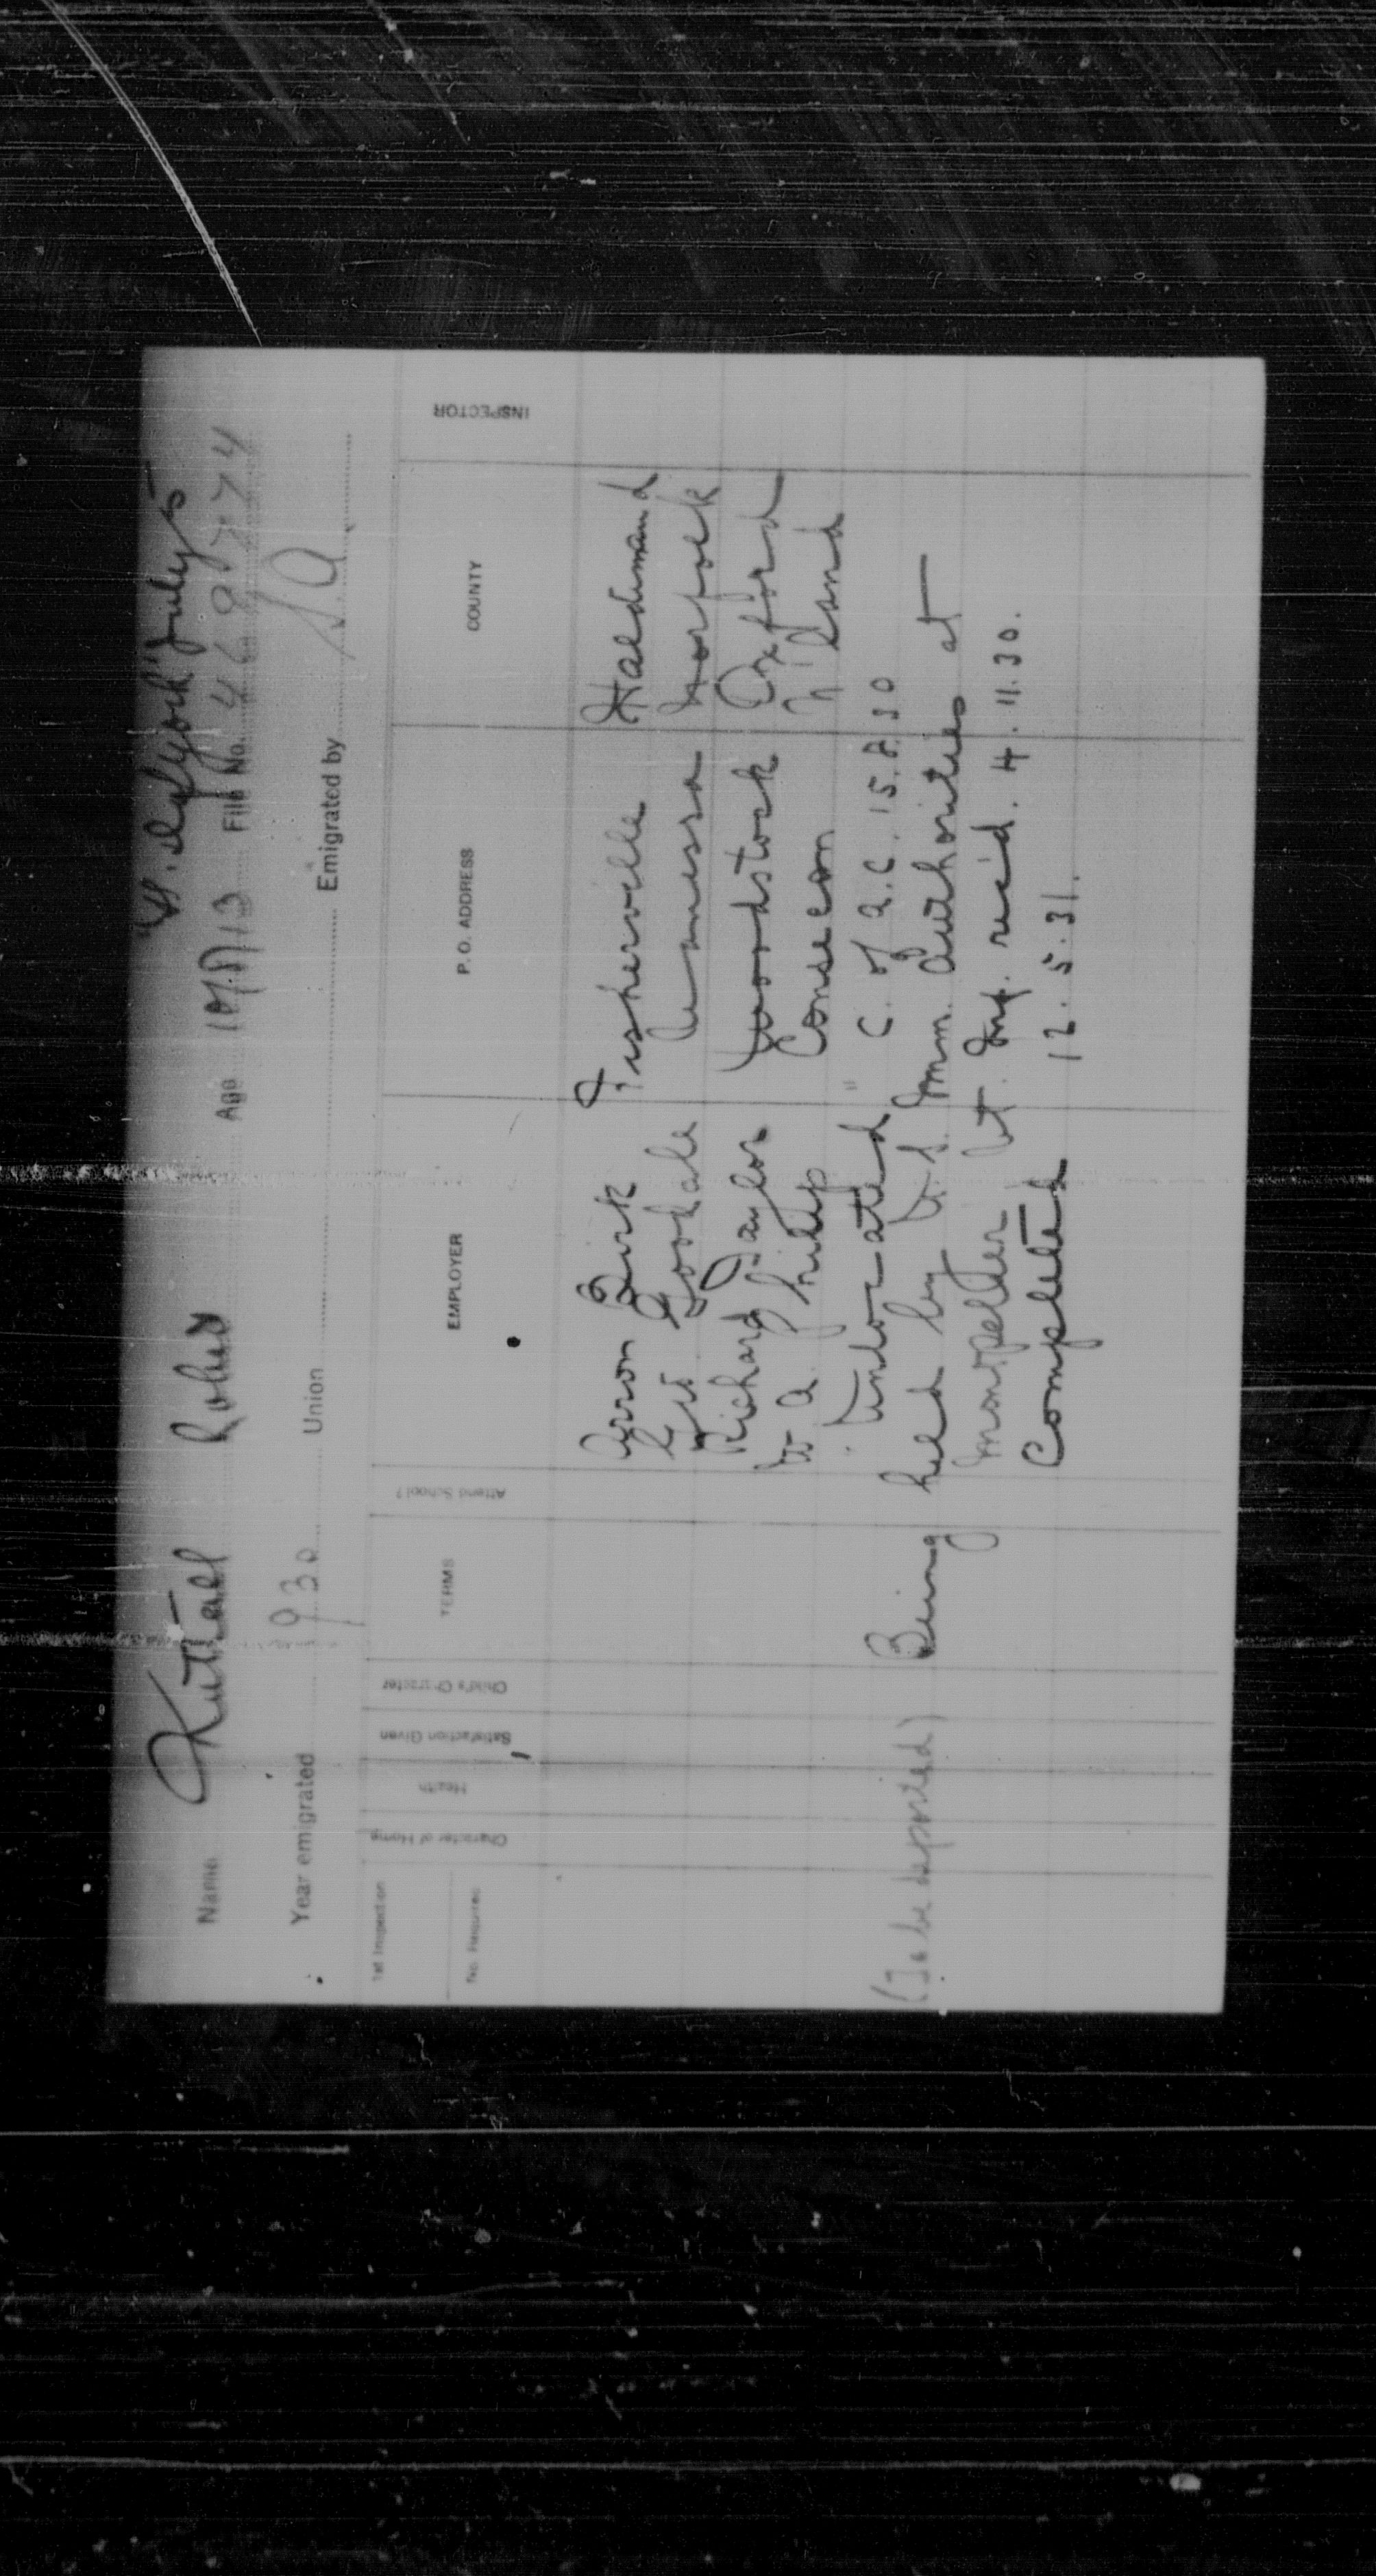 "D. of York" July 5
Name Kuttell Robert Age 17 File No. 468774
Year emigrated 930 Union Emigrated by S.A.
1st Inspection
No. Required
Character of Home
Health
Satisfaction Given
Child's Character
TERMS
Attend School?
EMPLOYER
P. O. ADDRESS
COUNTY
INSPECTOR
Arron Birk Fisherville Haldimand
Goodale Norfolk
Richard Taylor Woodstock Oxford
W A Philip Consecon N'land
C. of A.C. 15.8.30
(To be deported) Being held by U.S. Imm. Authorities at
Montpelier Vt. Inf. rec'd. 4.11.30.
Completed 12.5.31.